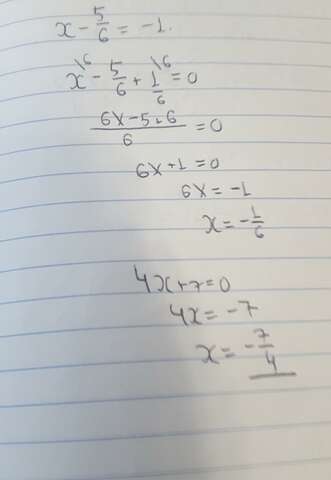 x - 5/6 = -1.
x\6 - 5/6 + 1\6/6 = 0
6x-5+6/6 = 0
6x+1=0
6x = -1
x = -1/6
4x+7=0
4x = -7
x = -7/4